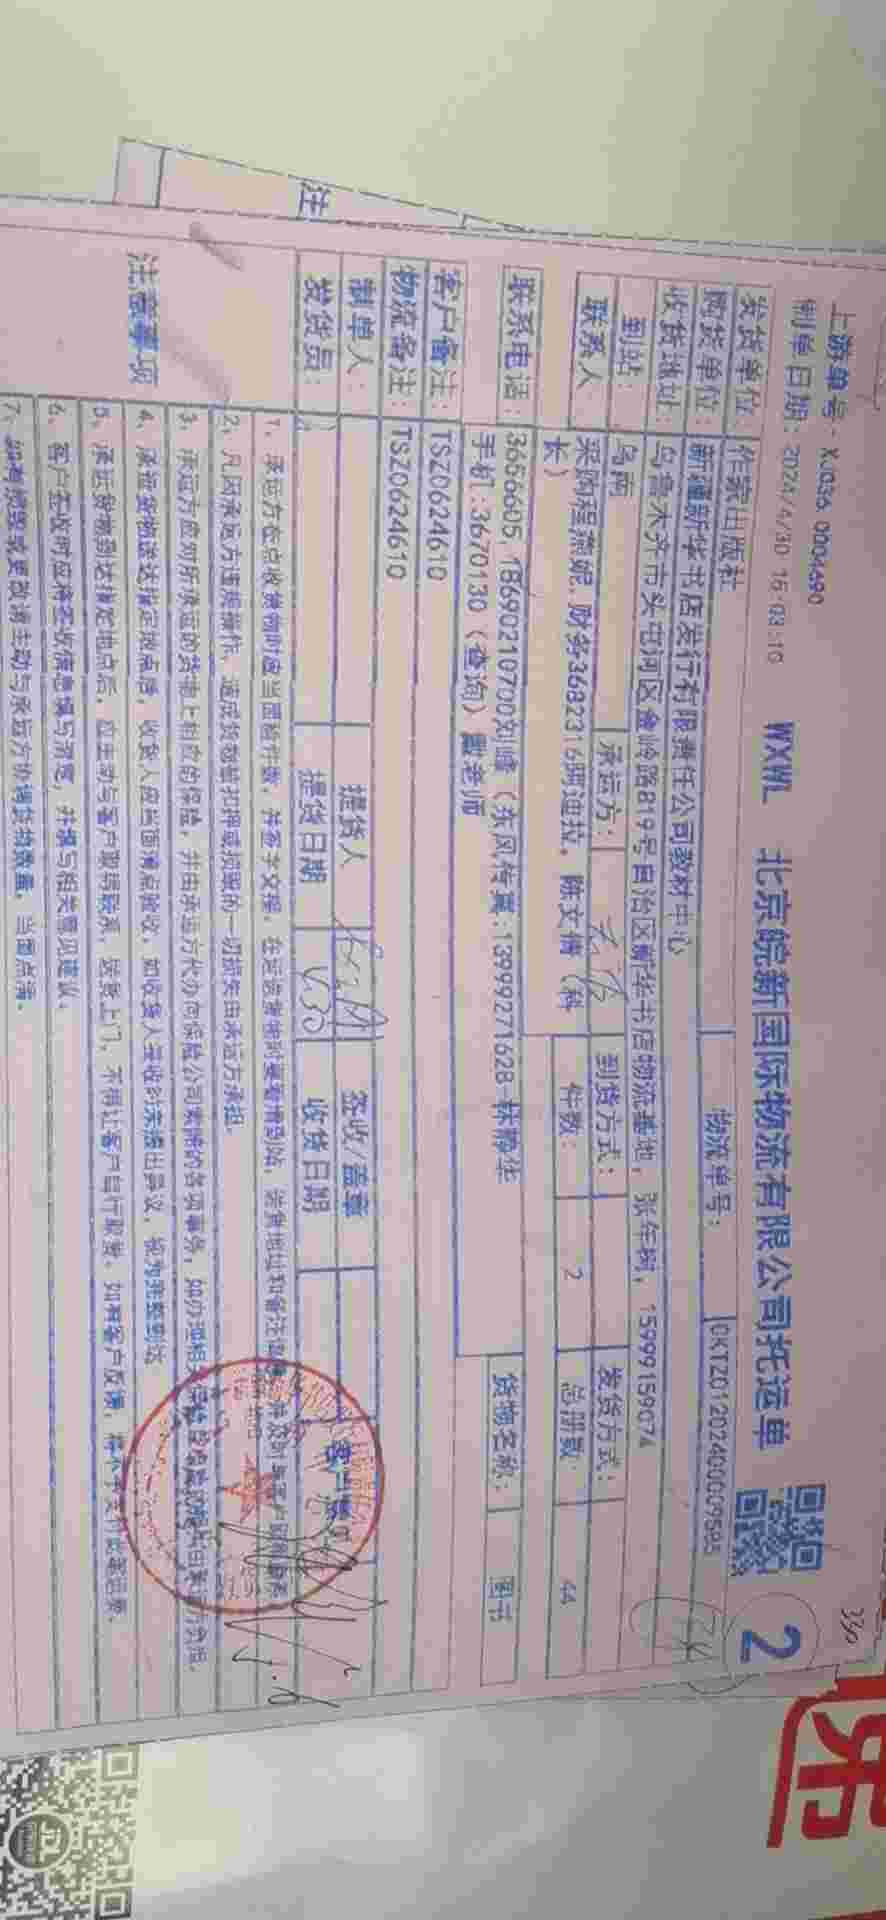 上游单号：XJ036 0004690
制单日期：2024/4/30 16:03:10 WXWL 北京皖新国际物流有限公司托运单
2
330
发货单位：作家出版社 物流单号：
购货单位：新疆新华书店发行有限责任公司教材中心
收货地址：乌鲁木齐市头屯河区金岭路819号自治区新华书店物流基地，张年树，15999159074
到站：乌南 承运方： 到货方式： 发货方式：
联系人 采购程燕妮,财务3682316阿迪拉，陈文倩（科长） 件数： 2 总册数： 44
联系电话：3656605，18690210700刘峰（东风传真:13999271628 林静华 手机:3670130（查询）戴老师 货物名称： 图书
客户备注：TSZ0624610
物流备注：TSZ0624610
制单人： 提货人 签收/盖章
发货员： 提货日期 收货日期
注意事项
1、承运方在点收货物时应当面验件数，并签字交接，在运货前核对
2、凡因承运方违规操作，造成货物暂扣押或损毁的一切损失由承运方承担。
3、承运方应对所承运的货物上相应的保险，并由承运方代办向保险公司索赔的各项事务，
4、承运货物送达指定地点后，收货人应当面清点验收，如收货人签收时未提出异议，视为完整到达
5、承运货物到达指定地点后，应主动与客户取得联系，送货上门，不得让客户自行取货，如有客户反馈，
6、客户签收时应将签收信息填写清楚，并填写相关意见建议。
7、如有损毁或更改请主动与承运方协调货物数量，当面点清。
注